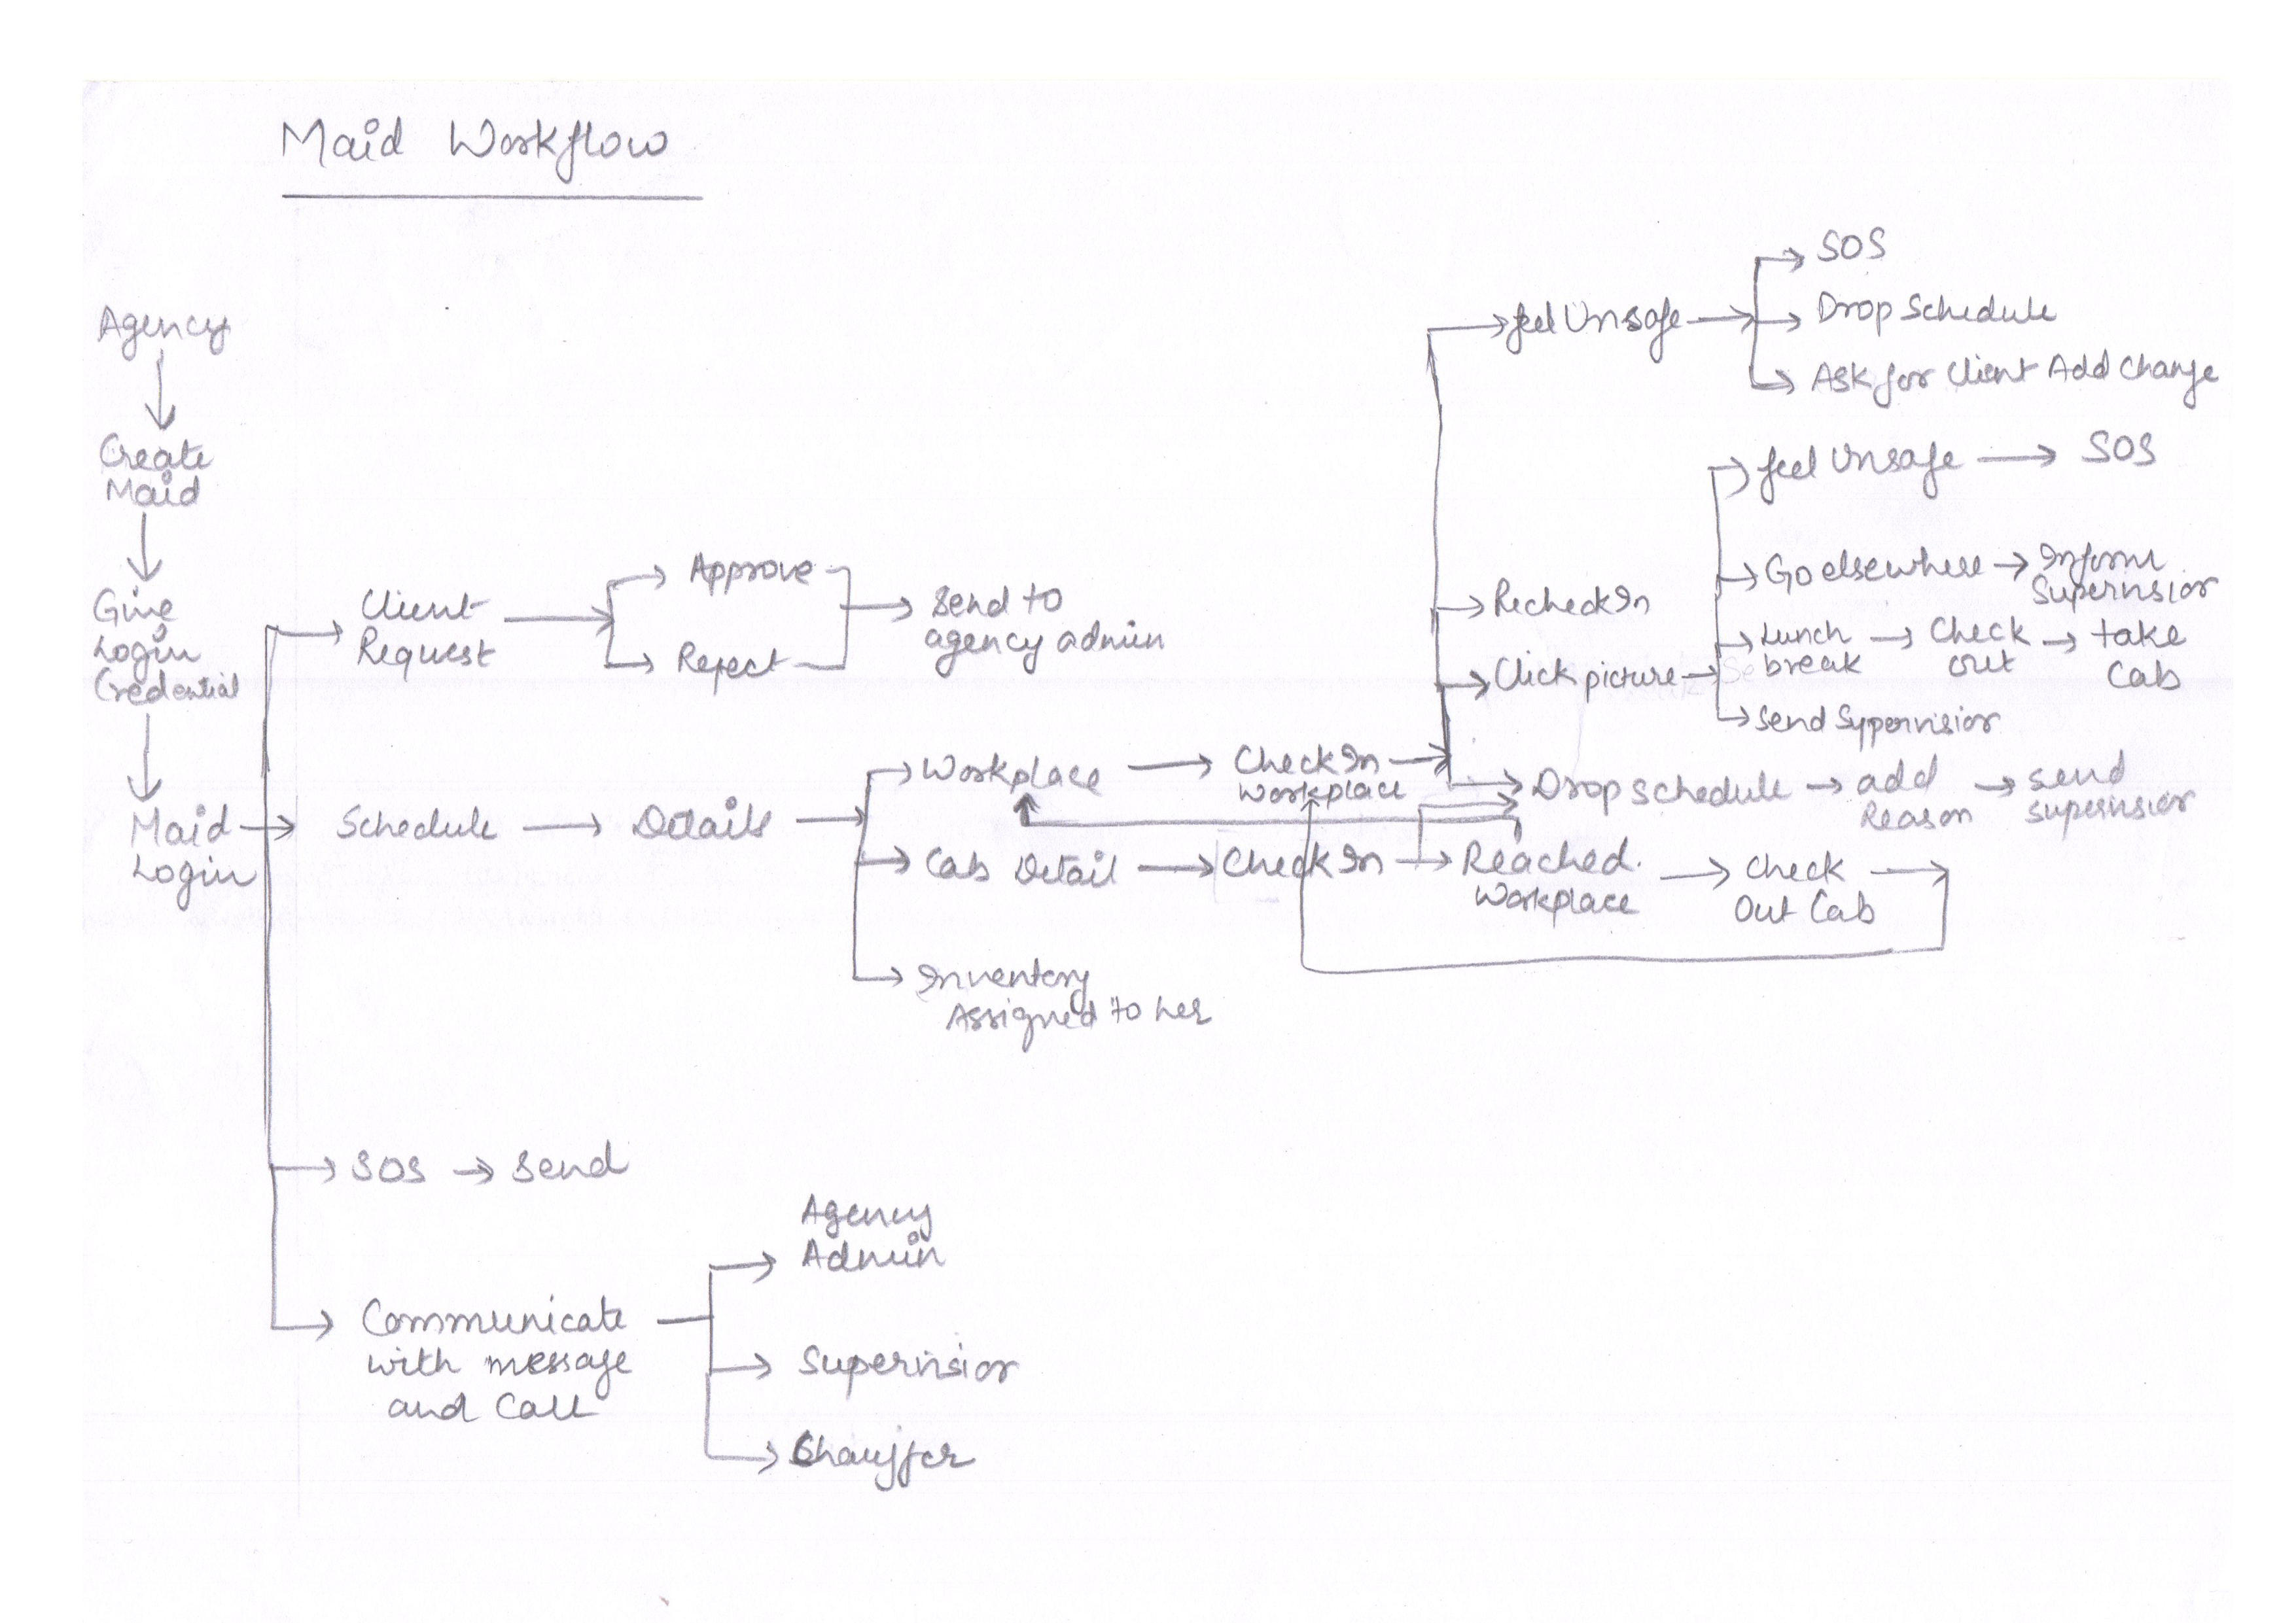 Maid Workflow
Agency
Create
Maid
Give
Login
Credential
Maid
Login
Client
Request
Approve
Reject
Send to
agency admin
Schedule
Details
Workplace
Check In
Workplace
feel Unsafe
SOS
Drop Schedule
Ask for Client Add Change
Recheck In
Click picture
feel Unsafe
SOS
Go elsewhere
Inform
Supervisior
Lunch
break
Check
out
take
Cab
Send Sypervisior
Drop schedule
add
Reason
send
supervisior
Cab Detail
Check In
Reached
Workplace
Check
Out Cab
Inventory
Assigned to her
SOS
Send
Communicate
with message
and Call
Agency
Admin
Supervisior
Chauffer